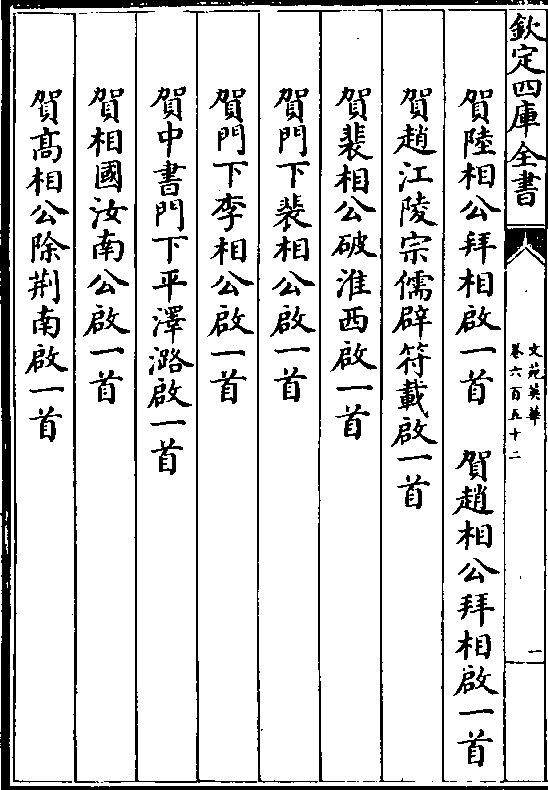 欽定四庫全書
文苑英華
卷六百五十二
一
賀陸相公拜相啟一首　賀趙相公拜相啟一首
賀趙江陵宗儒辟符載啟一首
賀裴相公破淮西啟一首
賀門下裴相公啟一首
賀門下李相公啟一首
賀中書門下平澤潞啟一首
賀相國汝南公啟一首
賀高相公除荆南啟一首